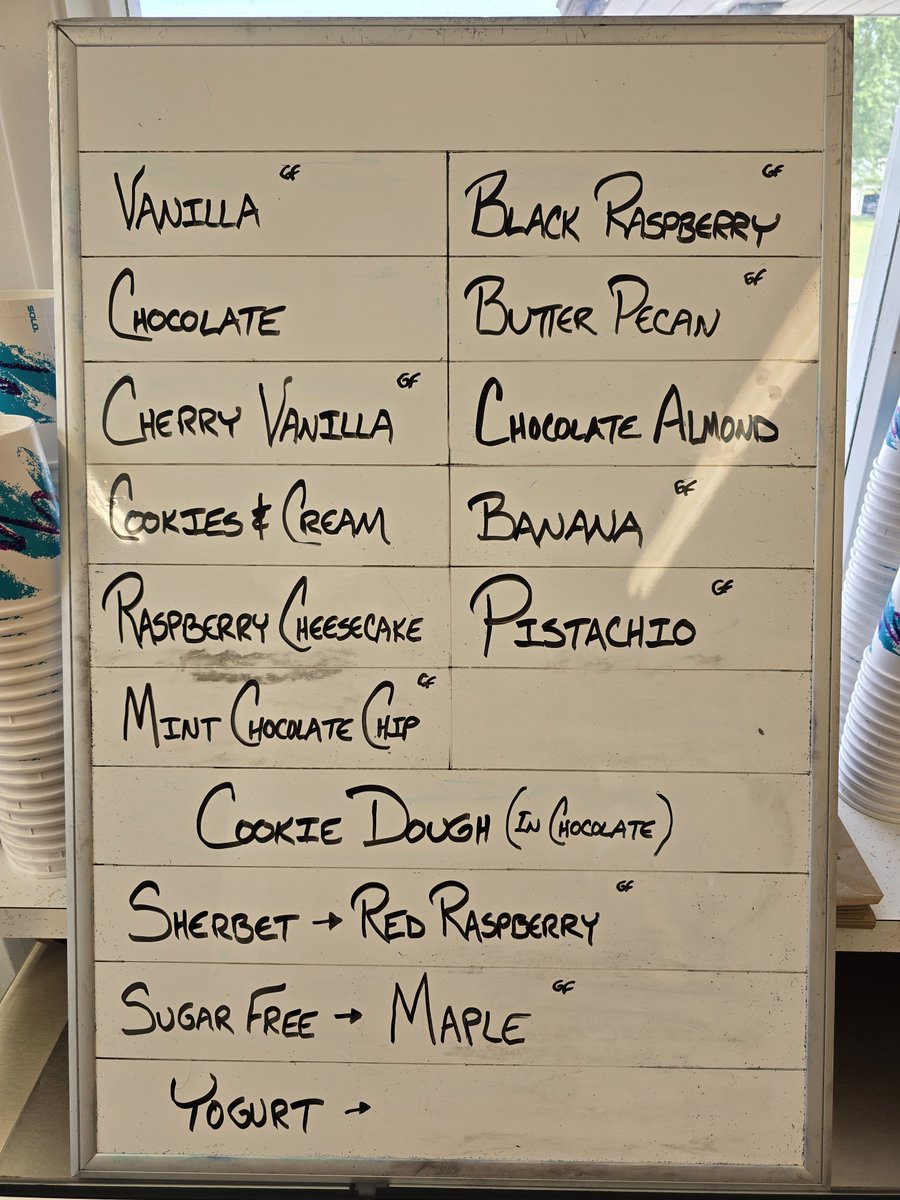 Vanilla GF
Black Raspberry GF
Chocolate
Butter Pecan GF
Cherry Vanilla GF
Chocolate Almond
Cookies & Cream
Banana GF
Raspberry Cheesecake
Pistachio GF
Mint Chocolate Chip GF
Cookie Dough (In Chocolate)
Sherbet → Red Raspberry GF
Sugar Free → Maple GF
Yogurt →
SOLO